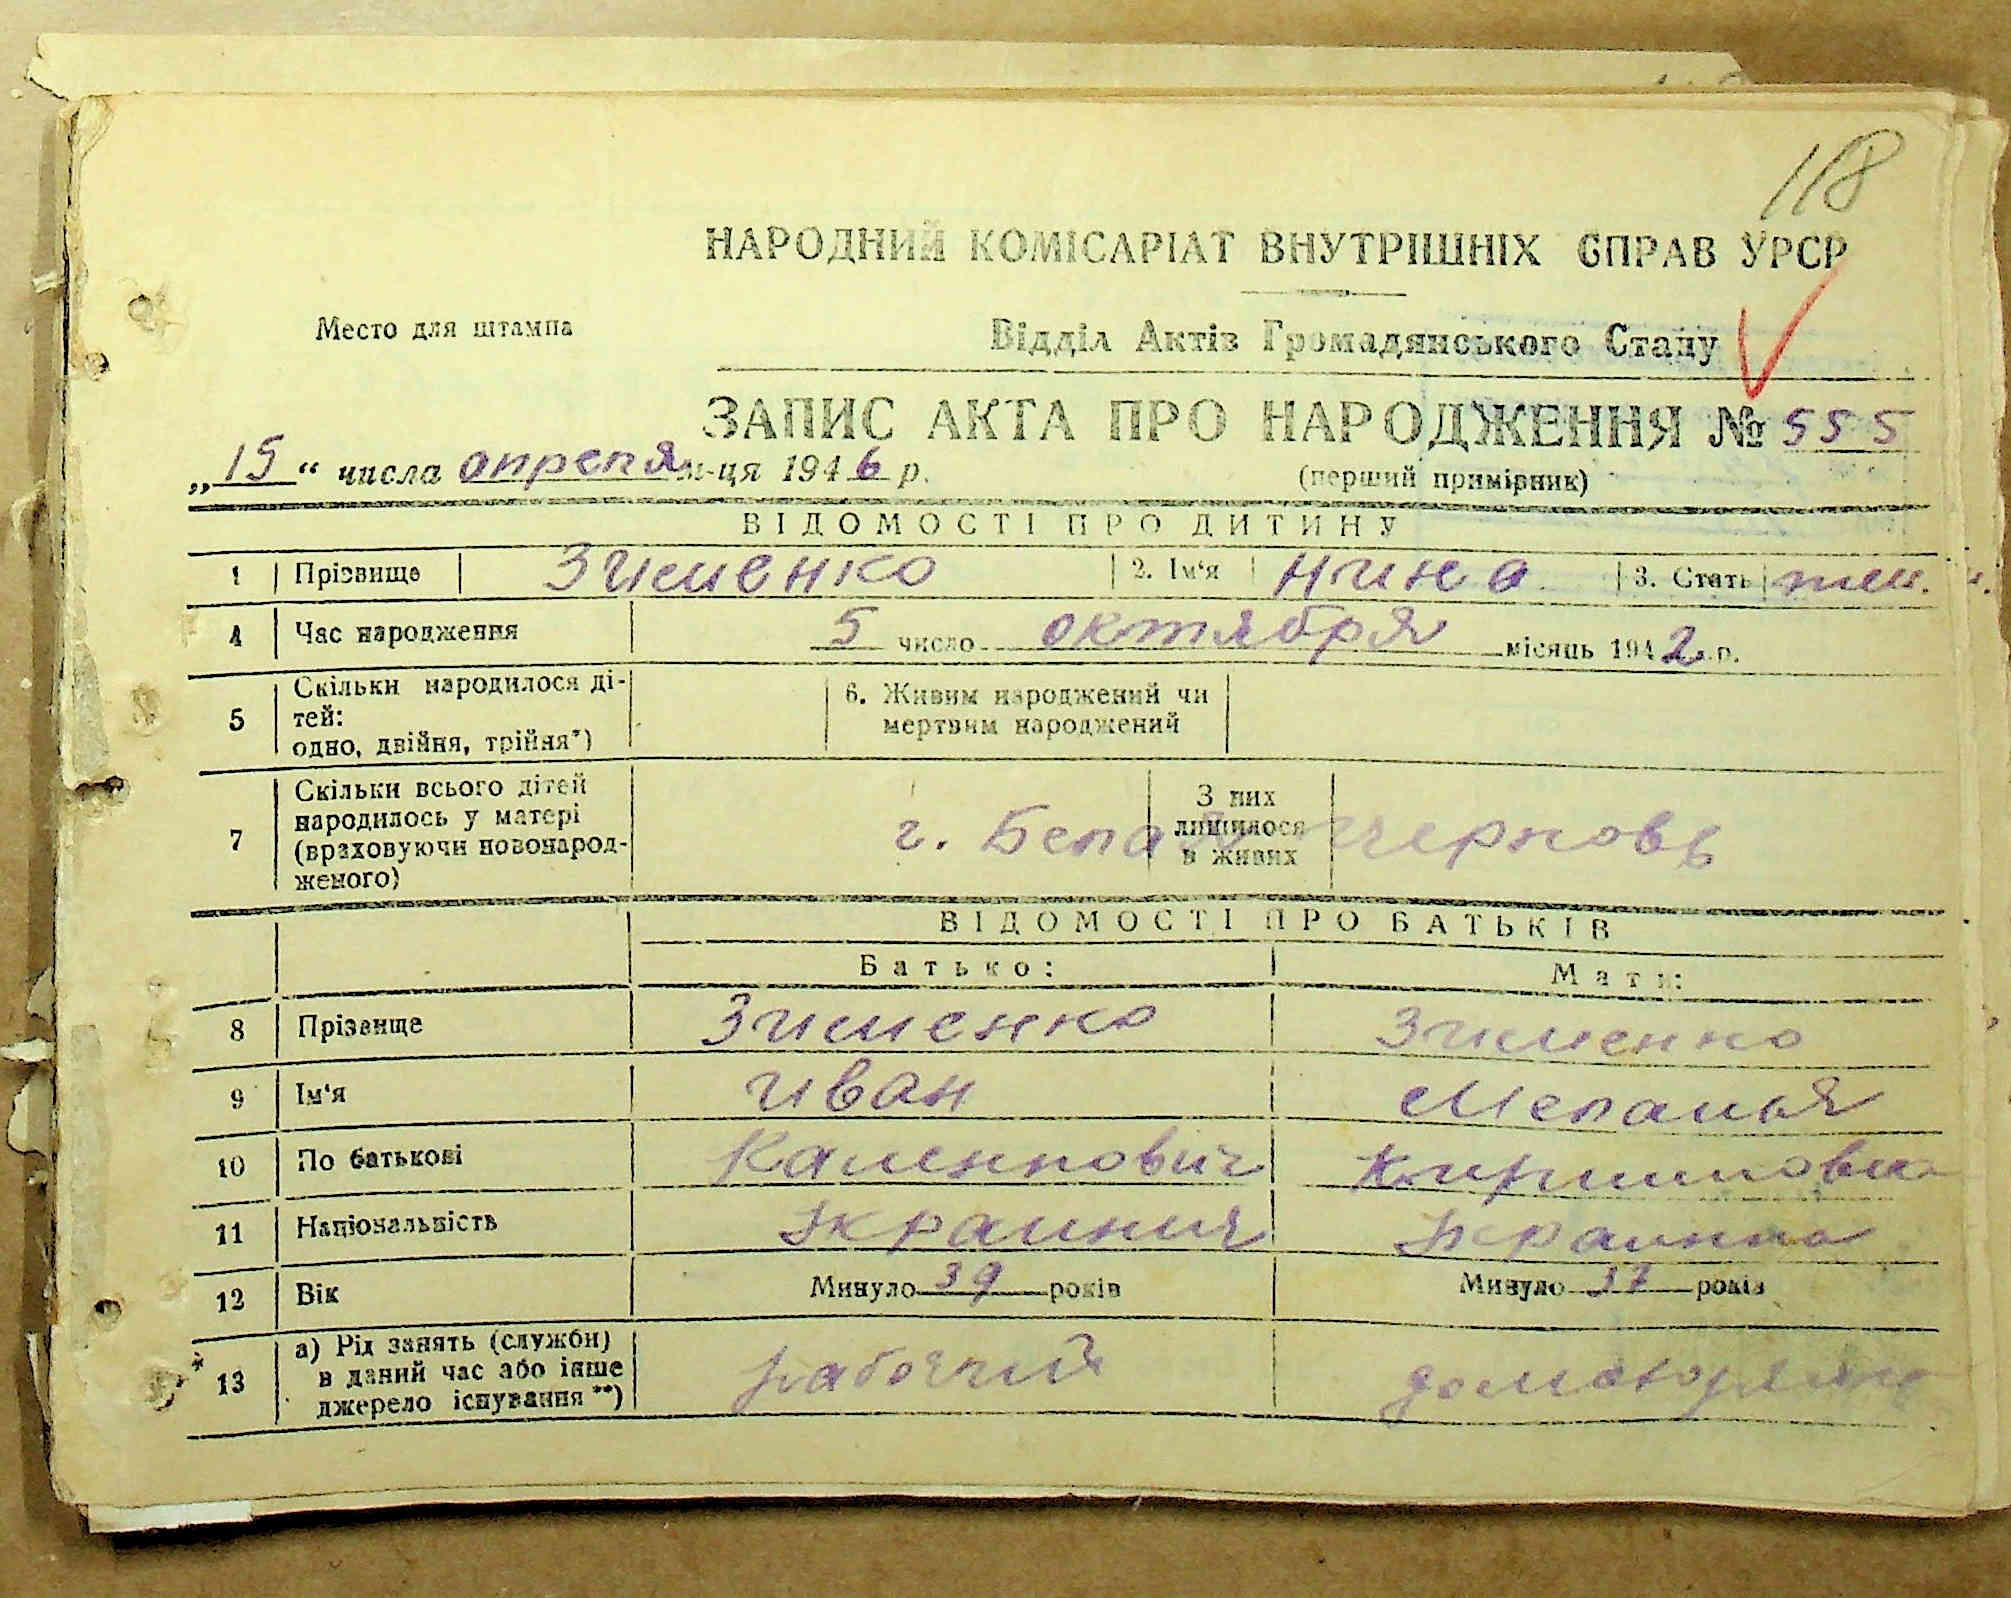 118
НАРОДНИЙ КОМІСАРІАТ ВНУТРІШНІХ СПРАВ УРСР
Место для штампа
Відділ Актів Громадянського Стану
ЗАПИС АКТА ПРО НАРОДЖЕННЯ № 555
„15“ числа апреля м-ця 1946 р.
(перший примірник)
ВІДОМОСТІ ПРО ДИТИНУ
1 Прізвище Зименко 2. Ім‘я Нина 3. Стать жен.
4 Час народження 5 число октября місяць 1942 р.
5 Скільки народилося ді-
тей:
одно, двійня, трійня*)
6. Живим народжений чи
мертвим народжений
7 Скільки всього дітей
народилось у матері
(враховуючи новонарод-
женого)
З них
лишилося
в живих
г. Белая Церковь
ВІДОМОСТІ ПРО БАТЬКІВ
Батько: Мати:
8 Прізвище Зименко Зименко
9 Ім‘я Иван Меланья
10 По батькові
11 Національність Украинец Украинка
12 Вік Минуло 39 років Минуло 37 років
13 а) Рід занять (служби)
в даний час або інше
джерело існування**)
рабочий